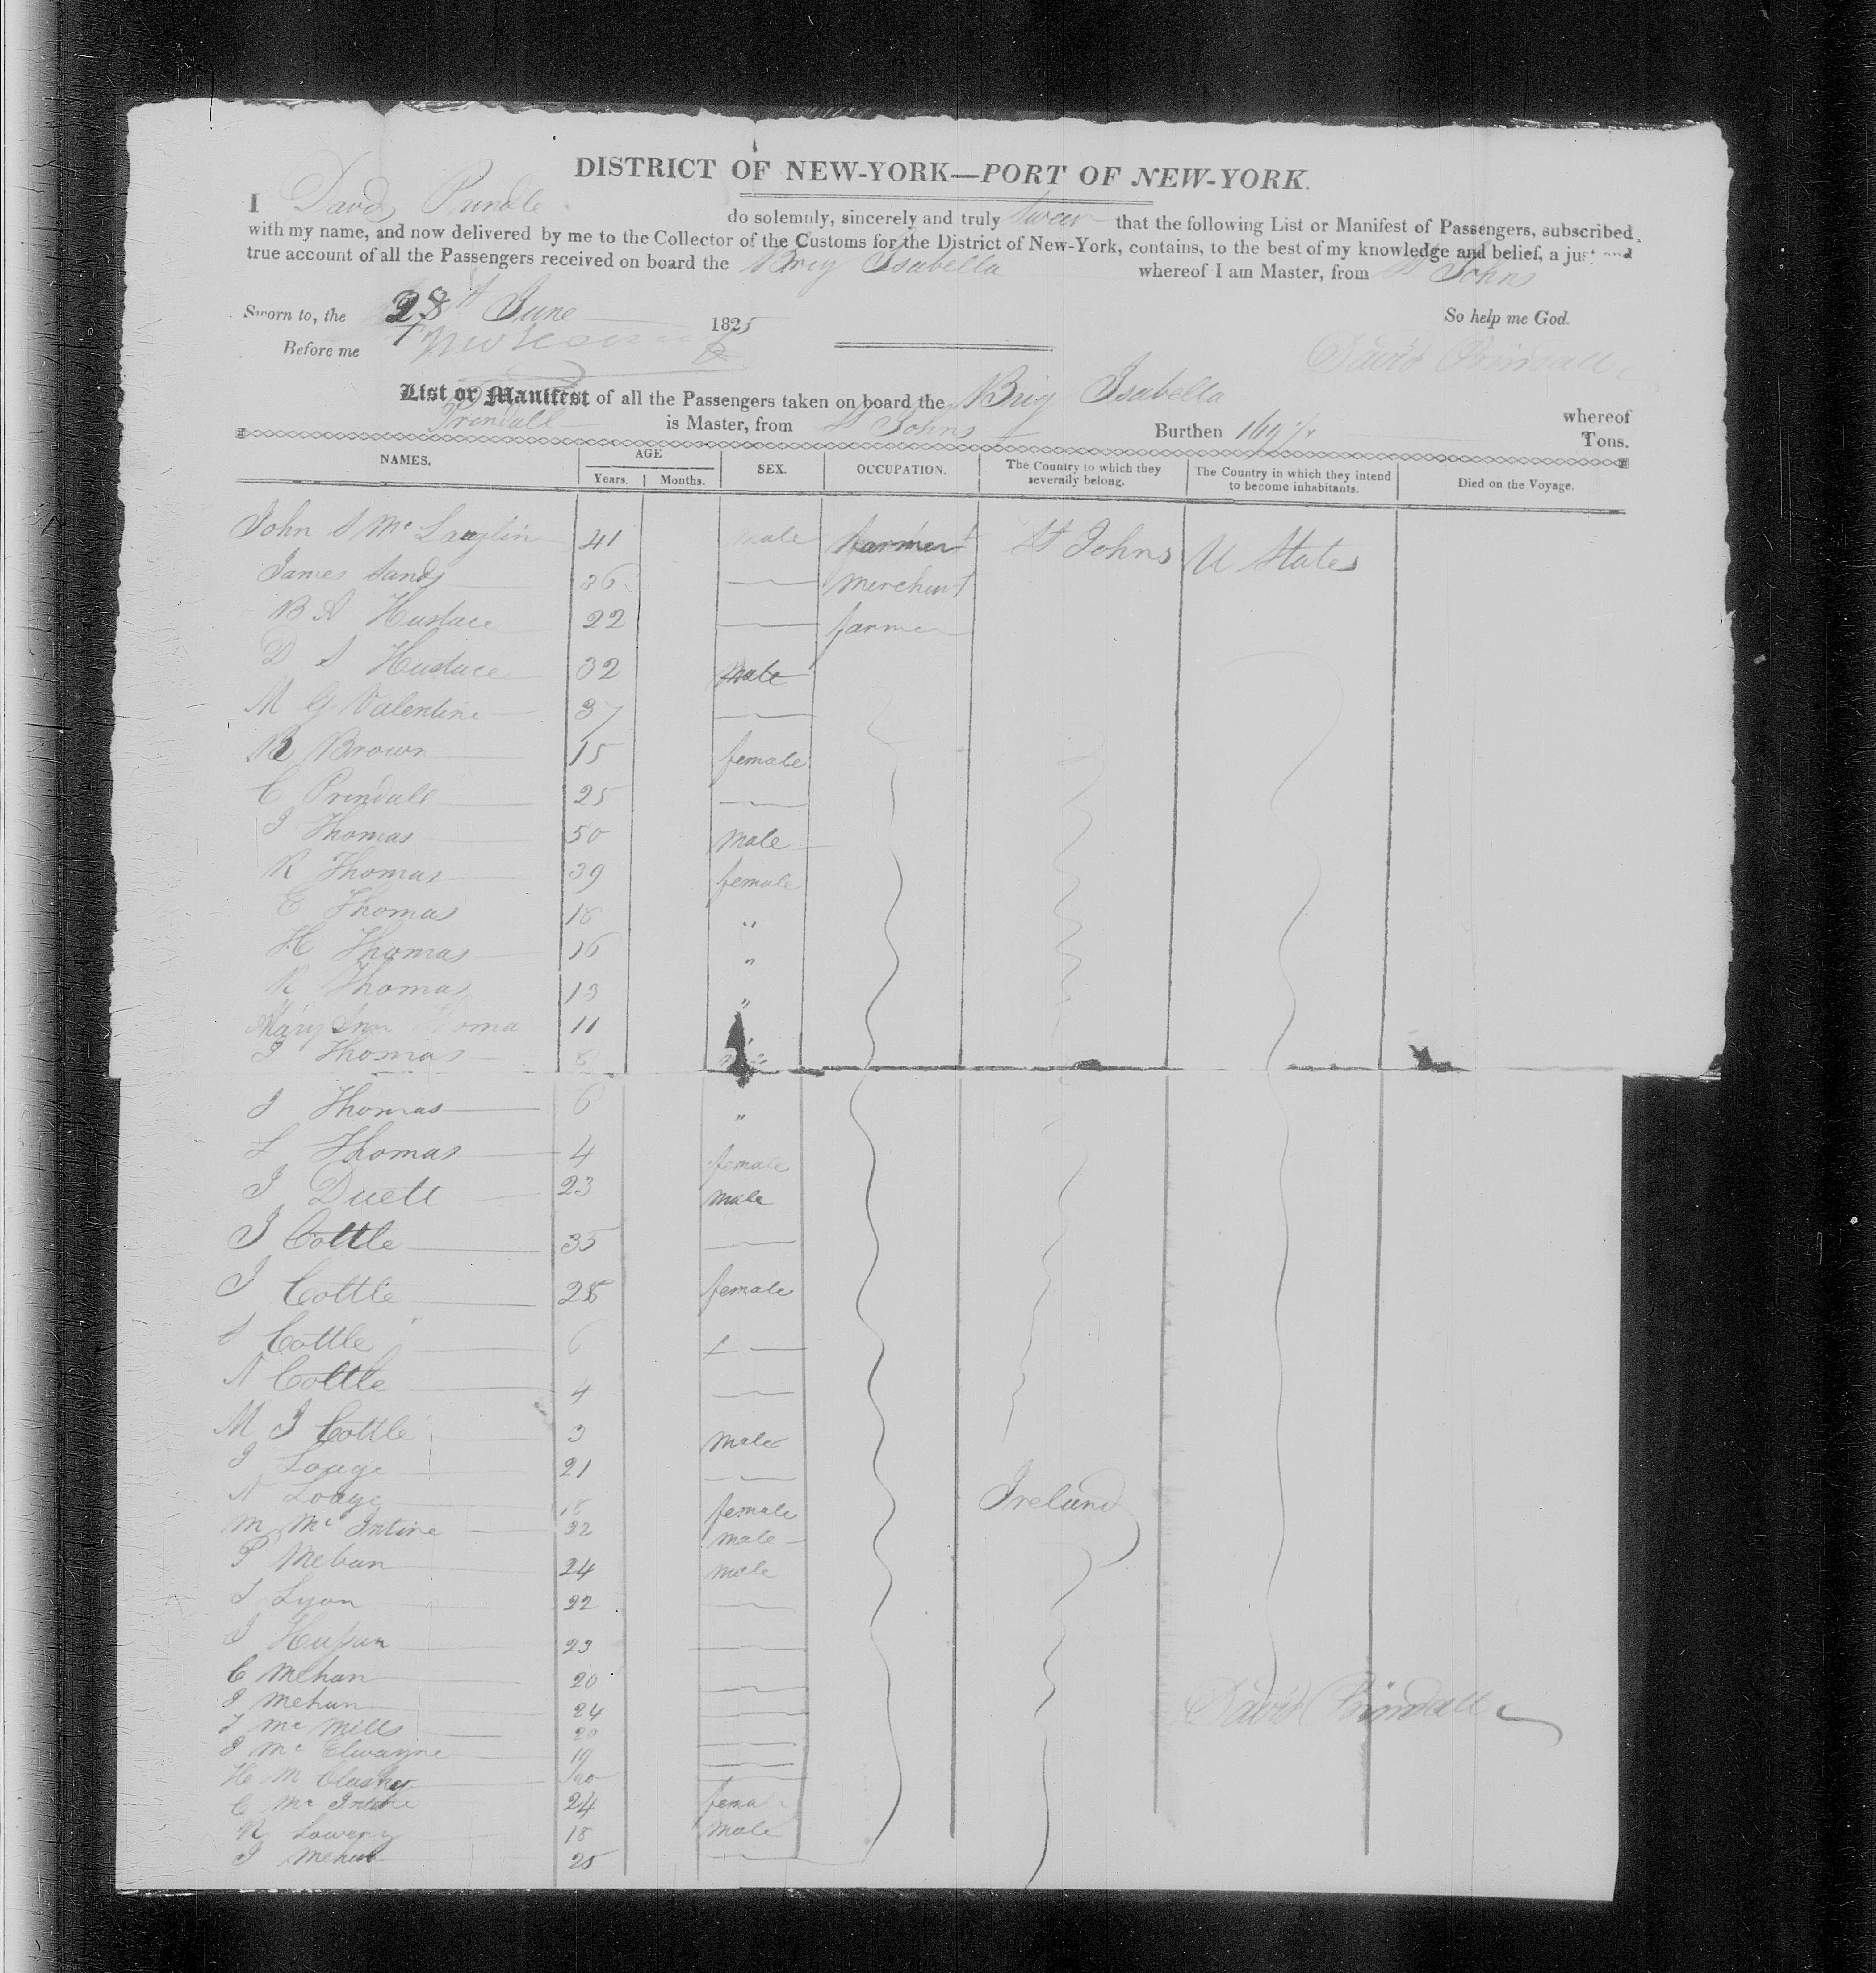 DISTRICT OF NEW-YORK—PORT OF NEW-YORK.
I David Prindle do solemnly, sincerely and truly swear that the following List or Manifest of Passengers, subscribed
with my name, and now delivered by me to the Collector of the Customs for the District of New-York, contains, to the best of my knowledge and belief, a just and
true account of all the Passengers received on board the Brig Isabella whereof I am Master, from St Johns
Sworn to, the 28 June 1825 So help me God.
Before me David Prindall
List or Manifest of all the Passengers taken on board the Brig Isabella whereof
Prindall is Master, from St Johns Burthen 169 Tons.
NAMES. AGE SEX. OCCUPATION. The Country to which they severally belong. The Country in which they intend to become inhabitants. Died on the Voyage.
Years. Months.
John S Mc Lauglin 41 male farmer St Johns U States
James Sands 36 — merchant
B A Hustace 22 — farmer
D S Hustace 32 male
M G Valentine 37 —
B Brown 15 female
C Prindall 25 —
J Thomas 50 male
R Thomas 39 female
E Thomas 18 "
H Thomas 16 "
R Thomas 13 "
Mary Ann Thomas 11
J Thomas 8
J Thomas 6 "
L Thomas 4 female
J Duett 23 male
J Cottle 35 —
J Cottle 25 female
S Cottle 6 —
N Cottle 4 —
M J Cottle 3 male
J Loage 21 —
N Loage 18 female Ireland
M Mc Intire 22 male
P Meban 24 male
J Lyon 22 —
J 23 —
C Mehan 20 —
J Mehan 24 — David Prindall
J Mc Mills 20 —
J Mc Elwayne 19 —
H M Clusky 20 —
C Mc Intire 24 female
R Lowery 18 male
J Mehan 25 —